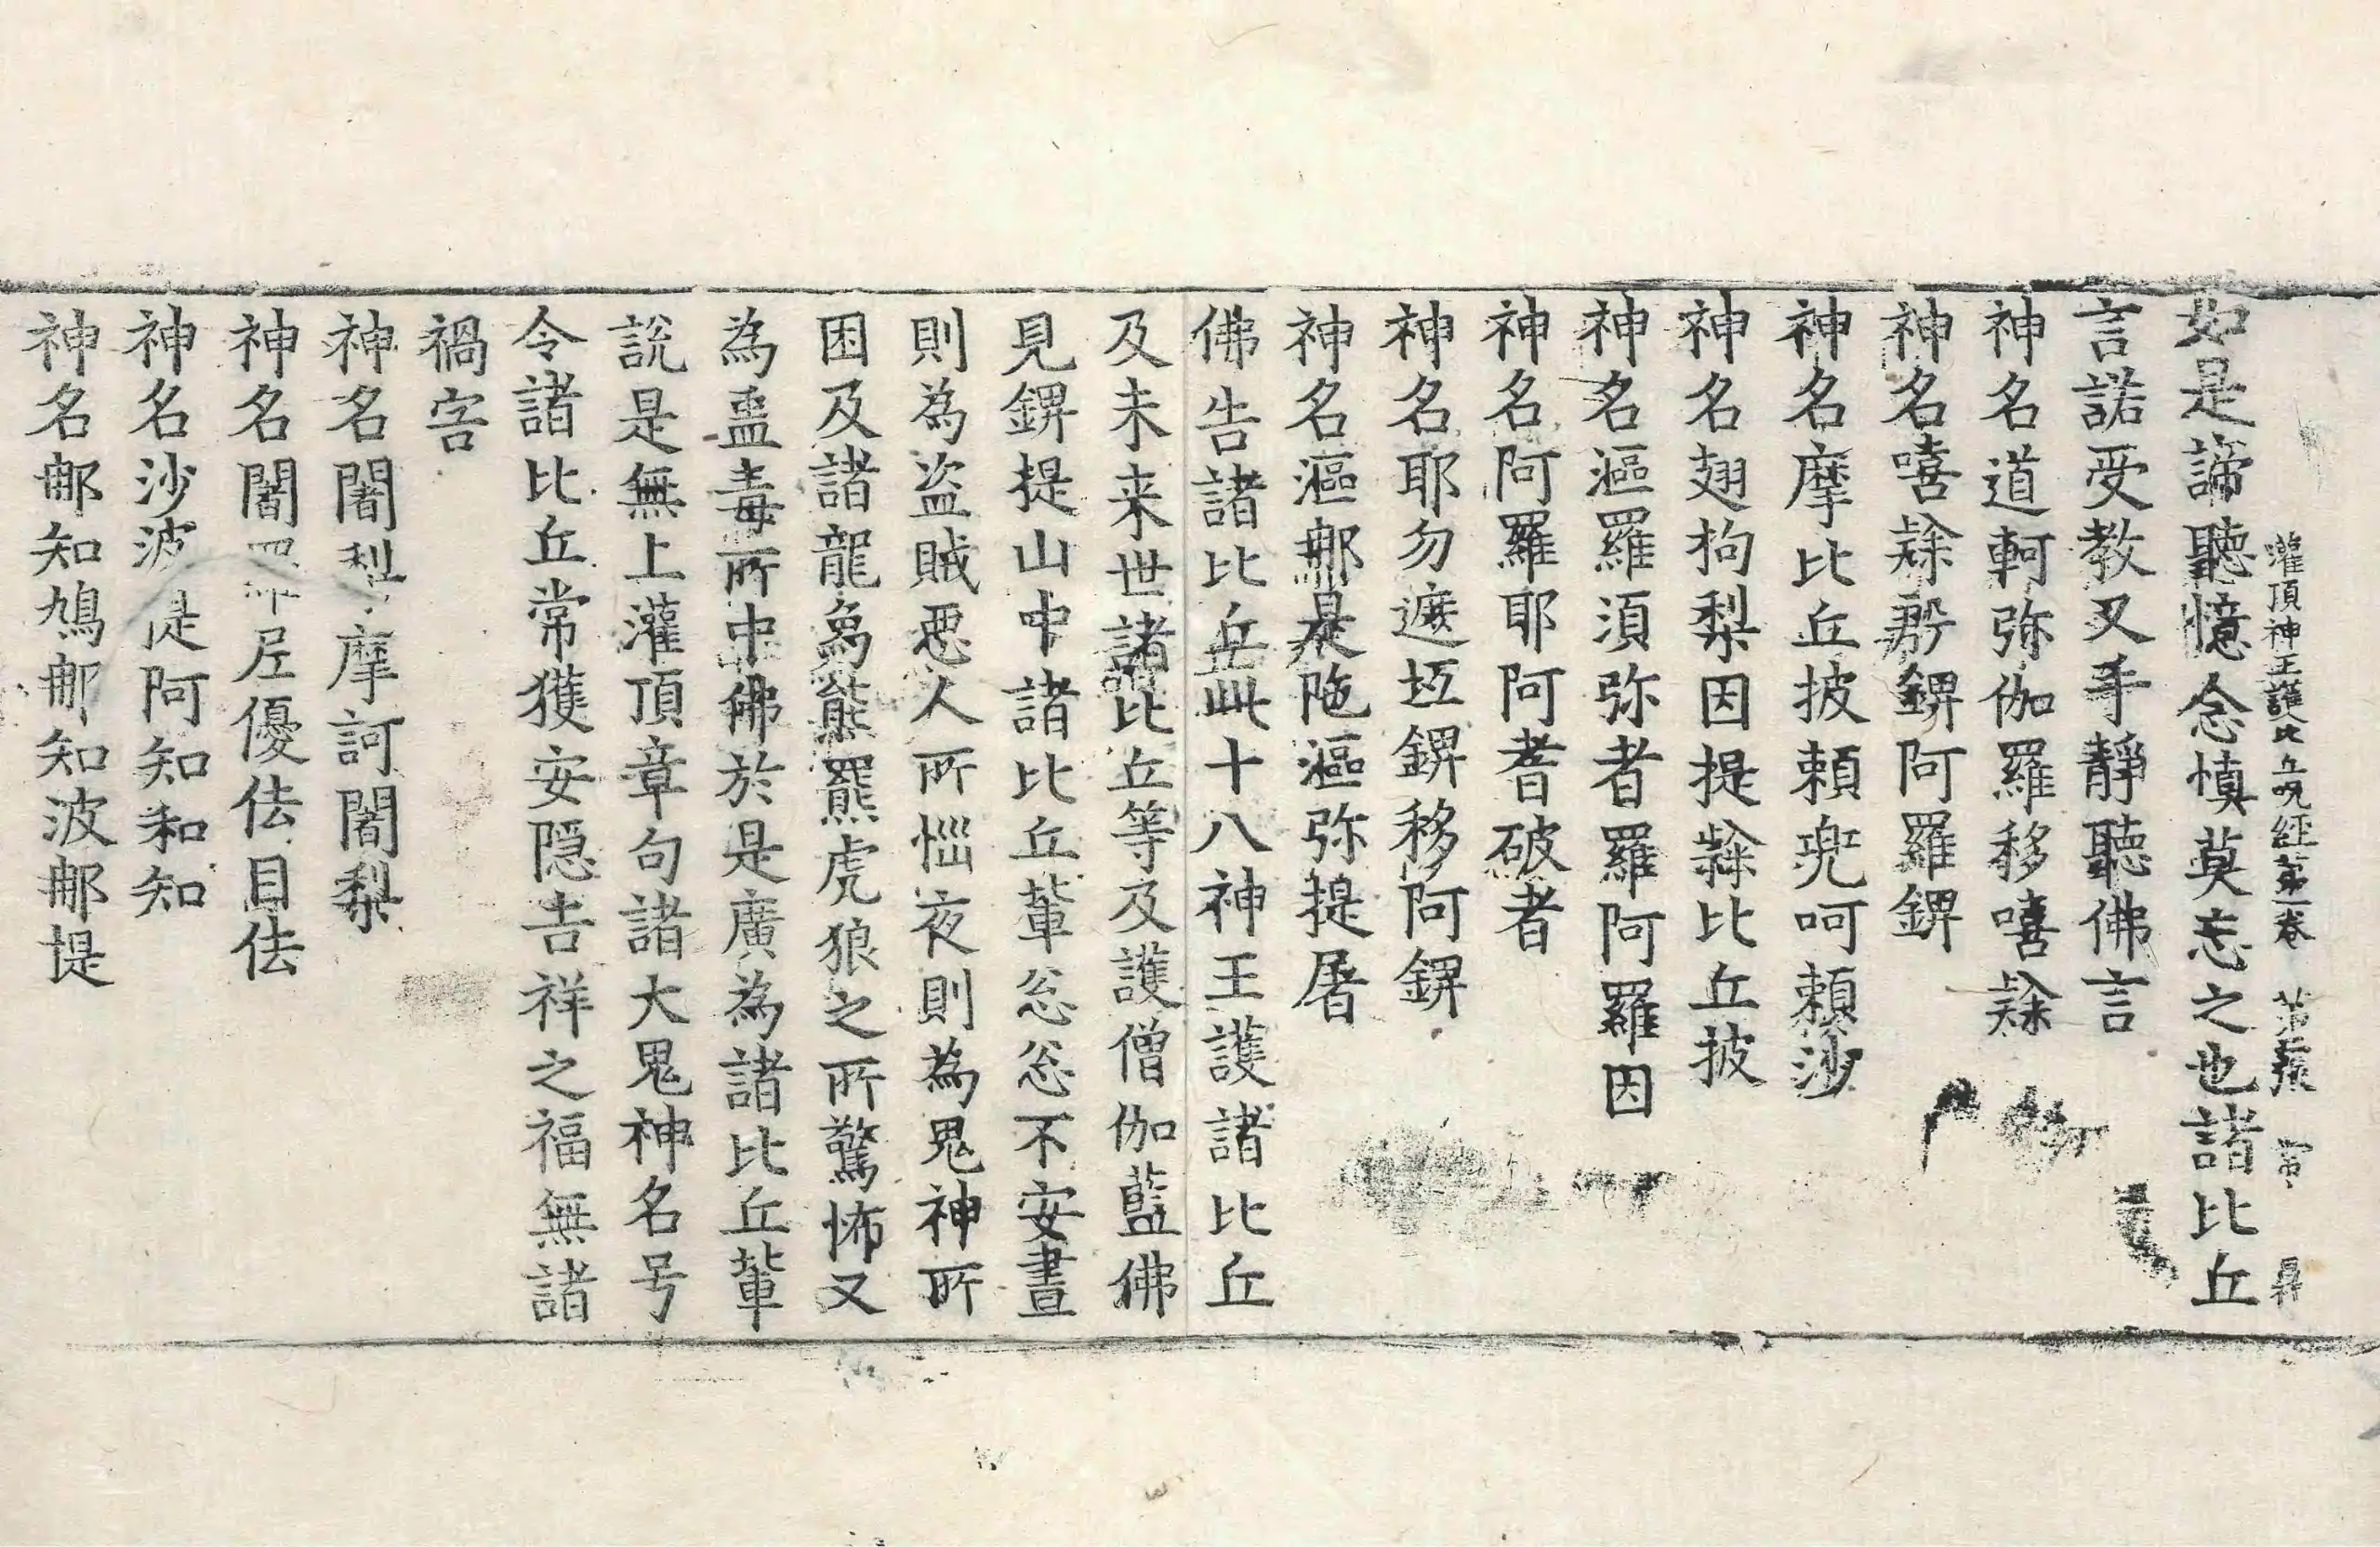 灌頂神王護比丘呪經第一卷 第二張 常 昇
如是諦聽憶念慎莫忘之也諸比丘
言諾受教叉手靜聽佛言
神名道軻弥伽羅移嘻隸
神名嘻隸鄈錍阿羅錍
神名摩比丘披賴兜呵賴沙
神名翅拘梨因提隸比丘披
神名漚羅須弥者羅阿羅因
神名阿羅耶阿耆破者
神名耶勿遮坻錍移阿錍
神名漚那是陁漚弥提屠
佛告諸比丘此十八神王護諸比丘
及未来世諸比丘等及護僧伽藍佛
見錍提山中諸比丘輩忩忩不安晝
則為盜賊惡人所惱夜則為鬼神所
困及諸龍象熊羆虎狼之所驚怖又
為蛊毒所中佛於是廣為諸比丘輩
說是無上灌頂章句諸大鬼神名号
令諸比丘常獲安隱吉祥之福無諸
禍害
神名闍梨摩訶闍梨
神名闍羅尼優佉目佉
神名沙波提阿知和知
神名那知鳩那知波那提